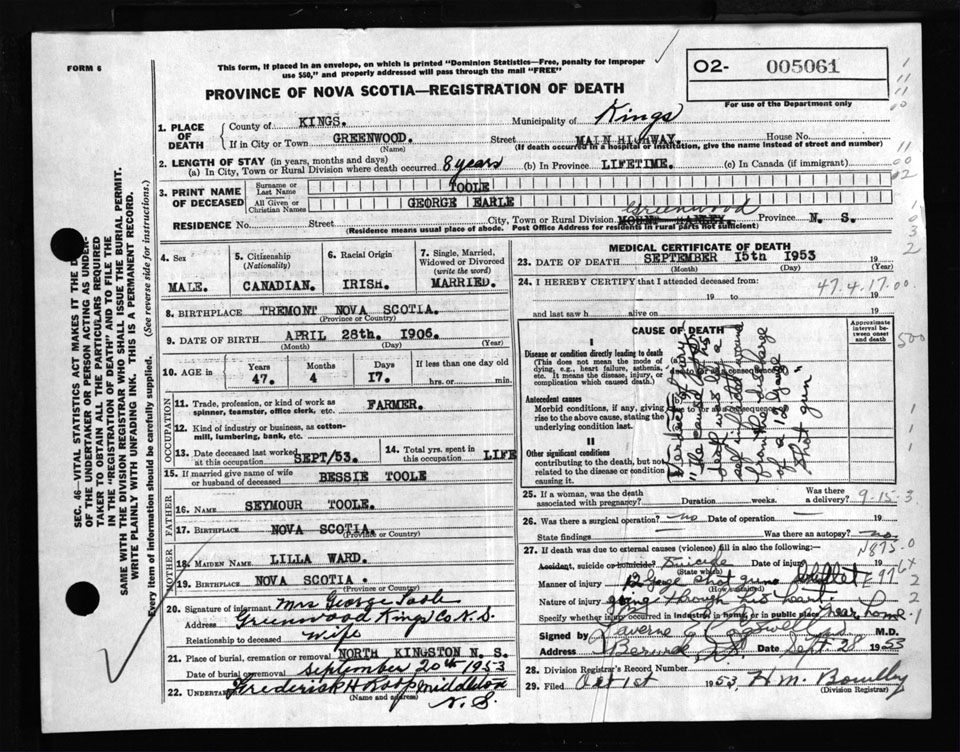 FORM 6
This form, if placed in an envelope, on which is printed "Dominion Statistics—Free, penalty for improper
use $50," and properly addressed will pass through the mail "FREE"
PROVINCE OF NOVA SCOTIA—REGISTRATION OF DEATH
O2- 005061
For use of the Department only
1. PLACE OF DEATH
County of KINGS. Municipality of Kings
If in City or Town GREENWOOD. Street MAIN HIGHWAY. House No.
(Name) (If death occurred in a hospital or institution, give the name instead of street and number)
2. LENGTH OF STAY (in years, months and days)
(a) In City, Town or Rural Division where death occurred 8 years (b) In Province LIFETIME. (c) In Canada (if immigrant)
3. PRINT NAME OF DECEASED
Surname or Last Name TOOLE
All Given or Christian Names GEORGE EARLE
Greenwood
RESIDENCE No. Street City, Town or Rural Division MOUNT HANLEY. Province N. S.
(Residence means usual place of abode. Post Office Address for residents in rural parts not sufficient)
SEC. 46—VITAL STATISTICS ACT MAKES IT THE D
OF THE UNDERTAKER OR PERSON ACTING AS UNDER-
TAKER TO OBTAIN ALL THE PARTICULARS REQUIRED
IN THE "REGISTRATION OF DEATH" AND TO FILE THE
SAME WITH THE DIVISION REGISTRAR WHO SHALL ISSUE THE BURIAL PERMIT.
WRITE PLAINLY WITH UNFADING INK. THIS IS A PERMANENT RECORD.
Every item of information should be carefully supplied. (See reverse side for instructions.)
4. Sex
MALE.
5. Citizenship (Nationality)
CANADIAN.
6. Racial Origin
IRISH.
7. Single, Married, Widowed or Divorced (write the word)
MARRIED.
8. BIRTHPLACE TREMONT NOVA SCOTIA.
(Province or Country)
9. DATE OF BIRTH APRIL 28th. 1906.
(Month) (Day) (Year)
10. AGE IN
Years 47. Months 4 Days 17. If less than one day old
hrs. or min.
OCCUPATION
11. Trade, profession, or kind of work as
spinner, teamster, office clerk, etc. FARMER.
12. Kind of industry or business, as cotton-
mill, lumbering, bank, etc.
13. Date deceased last worked at this occupation SEPT/53.
14. Total yrs. spent in this occupation LIFE
15. If married give name of wife
or husband of deceased BESSIE TOOLE
FATHER
16. NAME SEYMOUR TOOLE.
17. BIRTHPLACE NOVA SCOTIA.
(Province or Country)
MOTHER
18. MAIDEN NAME LILLA WARD.
19. BIRTHPLACE NOVA SCOTIA.
(Province or Country)
20. Signature of informant Mrs George Toole
Address Greenwood Kings Co N.S.
Relationship to deceased Wife
21. Place of burial, cremation or removal NORTH KINGSTON N. S.
Date of burial or removal September 20th 1953
22. UNDERTAKER Frederick H Middleton
(Name and address) N.S.
MEDICAL CERTIFICATE OF DEATH
23. DATE OF DEATH SEPTEMBER 15th 1953 19
(Month) (Day) (Year)
24. I HEREBY CERTIFY that I attended deceased from:
47.4.17.00
19 to 19
and last saw h alive on 19
CAUSE OF DEATH
Approximate interval between onset and death
I
Disease or condition directly leading to death
(This does not mean the mode of
dying, e.g., heart failure, asthenia,
etc. It means the disease, injury, or
complication which caused death.)
Antecedent causes
Morbid conditions, if any, giving
rise to the above cause, stating the
underlying condition last.
II
Other significant conditions
contributing to the death, but not
related to the disease or condition
causing it.
Verdict of jury
"The cause of his
death was by a
self inflicted wound
from the discharge
of a 12 gauge
shot gun"
500
25. If a woman, was the death
associated with pregnancy? Duration weeks. Was there a delivery?
9-15-3
26. Was there a surgical operation? no Date of operation 19
State findings Was there an autopsy? no
N875-0
27. If death was due to external causes (violence) fill in also the following:—
Accident, suicide or homicide? Suicide Date of injury 19
(State which)
Manner of injury 12 Gage shot gun
(How sustained)
Nature of injury going through his heart
Specify whether injury occurred in industry, in home, or in public place near home
Signed by Laverne M.D.
Address Berwick Date Sept. 28 1953
28. Division Registrar's Record Number
29. Filed Oct 1st 1953, H M.
(Division Registrar)